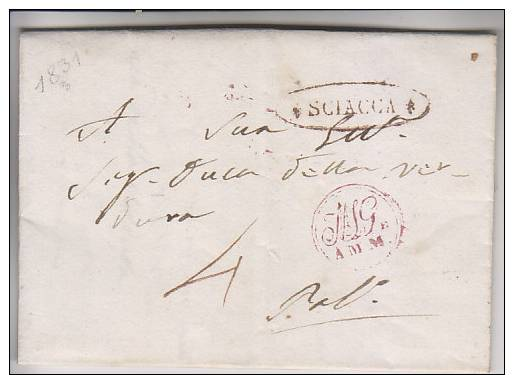 1831
SCIACCA
A Sua Ecc.
Sig. Duca della Ver-
dura
4
A M M.
Pal.